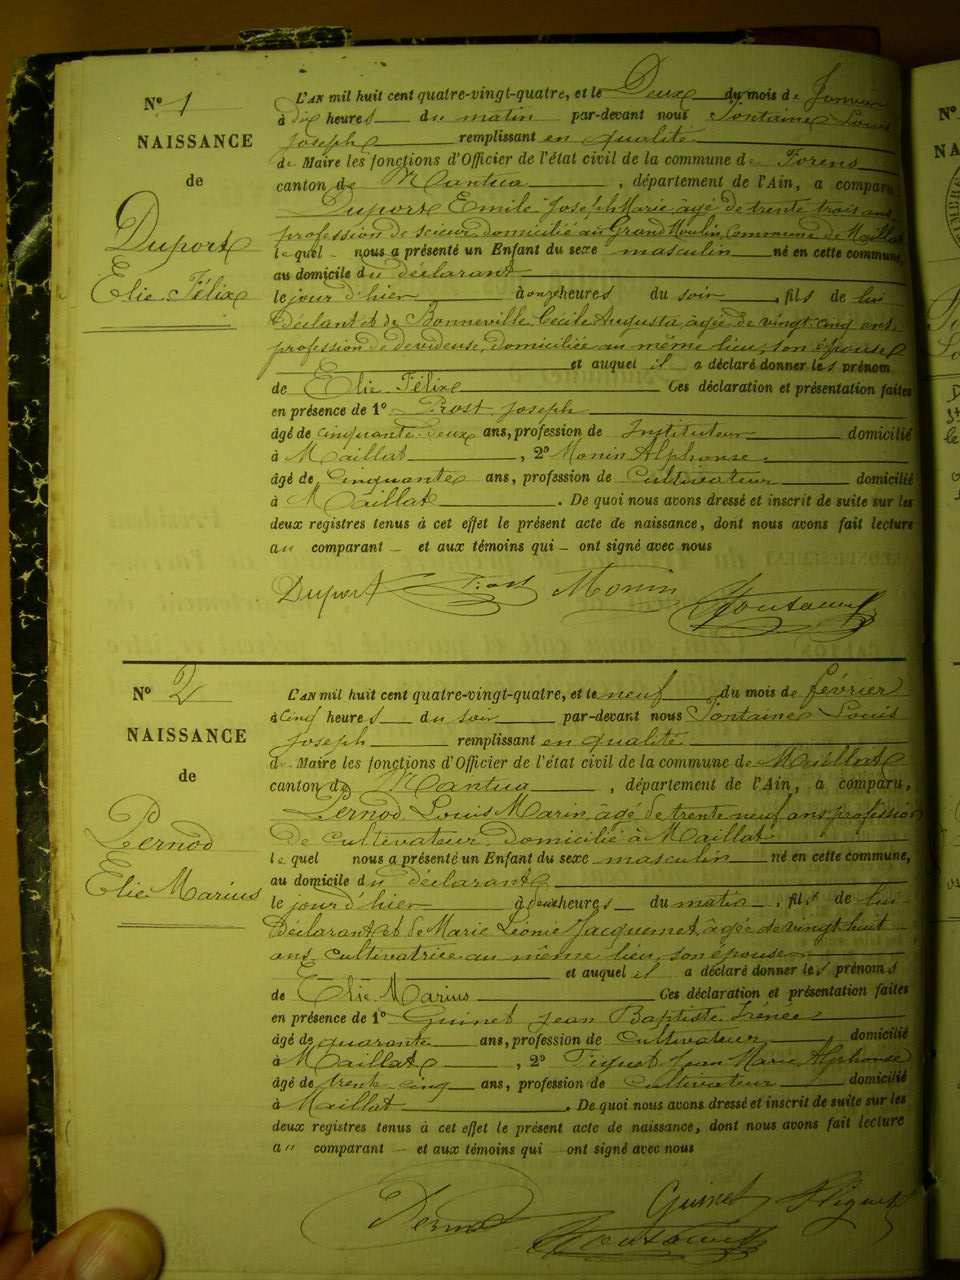 N° 1
NAISSANCE
de
Duport
Elie Félix
L'AN mil huit cent quatre-vingt-quatre, et le Deux du mois de Janvier
à dix heures du matin par-devant nous Fontaine Louis
Joseph remplissant en qualité
de Maire les fonctions d'Officier de l'état civil de la commune de
canton de Nantua, département de l'Ain, a comparu
Duport Emile Joseph Marie, âgé de trente trois ans
profession de scieur domicilié au Grand Moulin, Commune de Maillat
lequel nous a présenté un Enfant du sexe masculin né en cette commune,
au domicile du déclarant
le jour d'hier à onze heures du soir, fils de lui
déclant et de Bonneville Cécile Augusta, âgée de vingt cinq ans,
profession de dévideuse, domiciliée au même lieu, son épouse
et auquel il a déclaré donner les prénom
de Elie Félix Ces déclaration et présentation faites
en présence de 1° Prost Joseph
âgé de cinquante deux ans, profession de Instituteur domicilié
à Maillat, 2° Monin Alphonse.
âgé de Cinquante ans, profession de Cultivateur domicilié
à Maillat. De quoi nous avons dressé et inscrit de suite sur les
deux registres tenus à cet effet le présent acte de naissance, dont nous avons fait lecture
au comparant et aux témoins qui ont signé avec nous
Duport Prost Monin Fontaine
N° 2
NAISSANCE
de
Pernod
Elie Marius
L'AN mil huit cent quatre-vingt-quatre, et le neuf du mois de février
à cinq heures du soir par-devant nous Fontaine Louis
Joseph remplissant en qualité
de Maire les fonctions d'Officier de l'état civil de la commune de Maillat
canton de Nantua, département de l'Ain, a comparu,
Pernod Louis Marin, âgé de trente neuf ans profession
de cultivateur domicilié à Maillat.
lequel nous a présenté un Enfant du sexe masculin né en cette commune,
au domicile du déclarant
le jour d'hier à deux heures du matin, fils de lui
déclarant et de Marie Léonie Jacquemet, âgée de vingt huit
ans, cultivatrice au même lieu, son épouse
et auquel il a déclaré donner les prénoms
de Elie Marius Ces déclaration et présentation faites
en présence de 1° Guinet Jean Baptiste Irénée
âgé de quarante ans, profession de Cultivateur domicilié
à Maillat, 2° Piquet Jean Marie Alphonse
âgé de trente cinq ans, profession de Cultivateur domicilié
à Maillat. De quoi nous avons dressé et inscrit de suite sur les
deux registres tenus à cet effet le présent acte de naissance, dont nous avons fait lecture
au comparant et aux témoins qui ont signé avec nous
Guinet Piquet
Pernod Fontaine